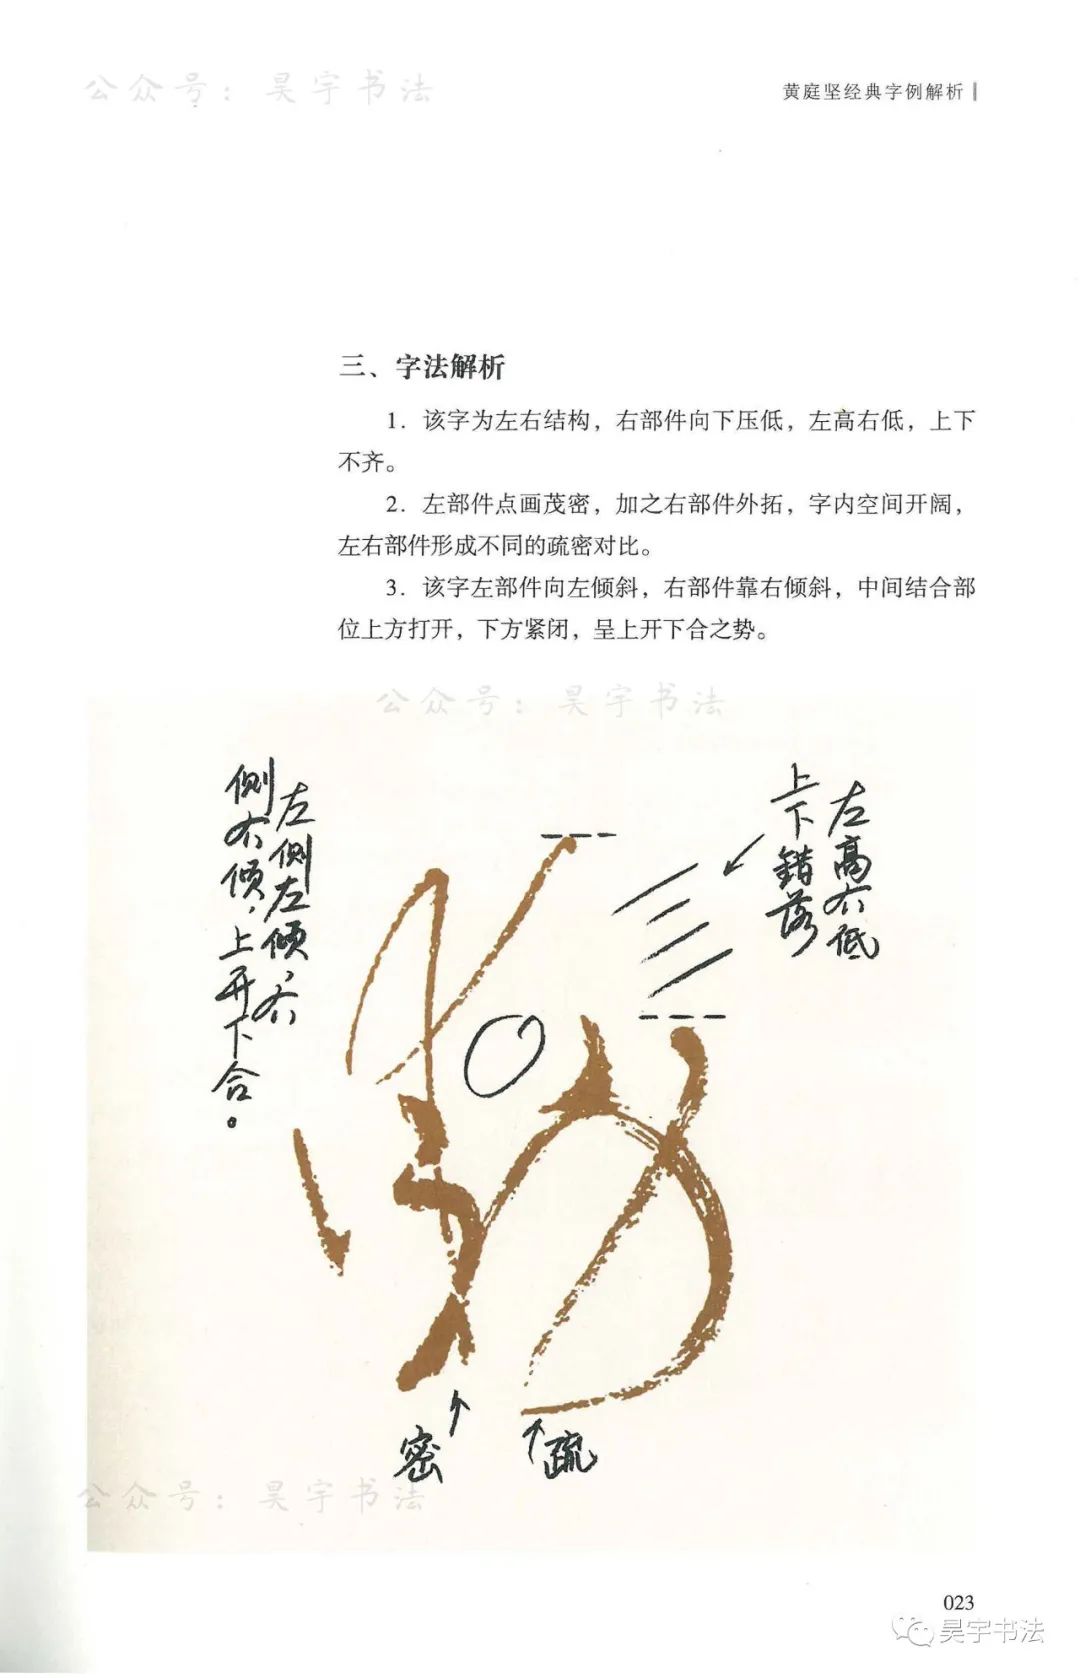 公众号：昊宇书法
黄庭坚经典字例解析
三、字法解析
1．该字为左右结构，右部件向下压低，左高右低，上下
不齐。
2．左部件点画茂密，加之右部件外拓，字内空间开阔，
左右部件形成不同的疏密对比。
3．该字左部件向左倾斜，右部件靠右倾斜，中间结合部
位上方打开，下方紧闭，呈上开下合之势。
公众号：昊宇书法
左高右低
上下错落
左侧左倾，右
侧右倾，上开下合。
密
疏
公众号：昊宇书法
023
昊宇书法